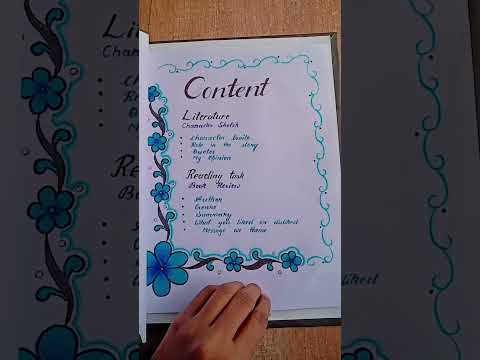 Content
Literature
Character Sketch
• Character traits
• Role in the story
• Quotes
• My opinion
Reading task
Book Review
• Author
• Genre
• Summary
• What you liked or disliked
• Message or theme